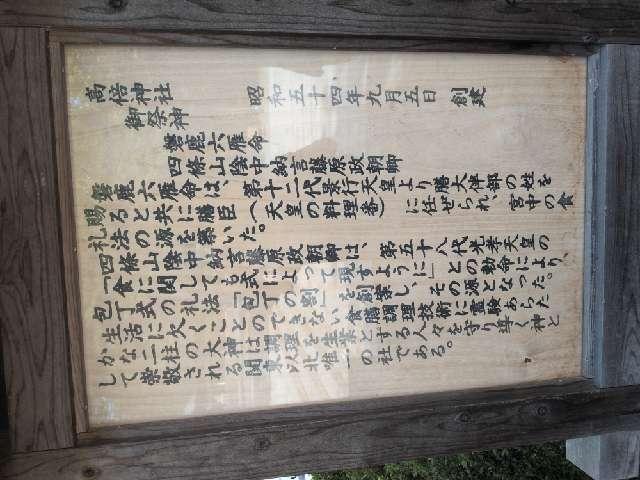 高倍神社 昭和五十四年九月五日 創建
御祭神
磐鹿六雁命
四條山陰中納言藤原政朝卿
磐鹿六雁命は、第十二代景行天皇より膳大伴部の姓を
賜ると共に膳臣(天皇の料理番)に任ぜられ、宮中の食
礼法の源を築いた。
四條山陰中納言藤原政朝卿は、第五十八代光孝天皇の
「食に関して古式によって現すように」との勅命により、
包丁式の礼法「包丁の割」を創案し、その源となった。
生活に欠くことのできない食膳調理技術に霊験あらた
かな二柱の大神は調理を生業とする人々を守り導く神と
して崇敬される関東以北唯一の社である。